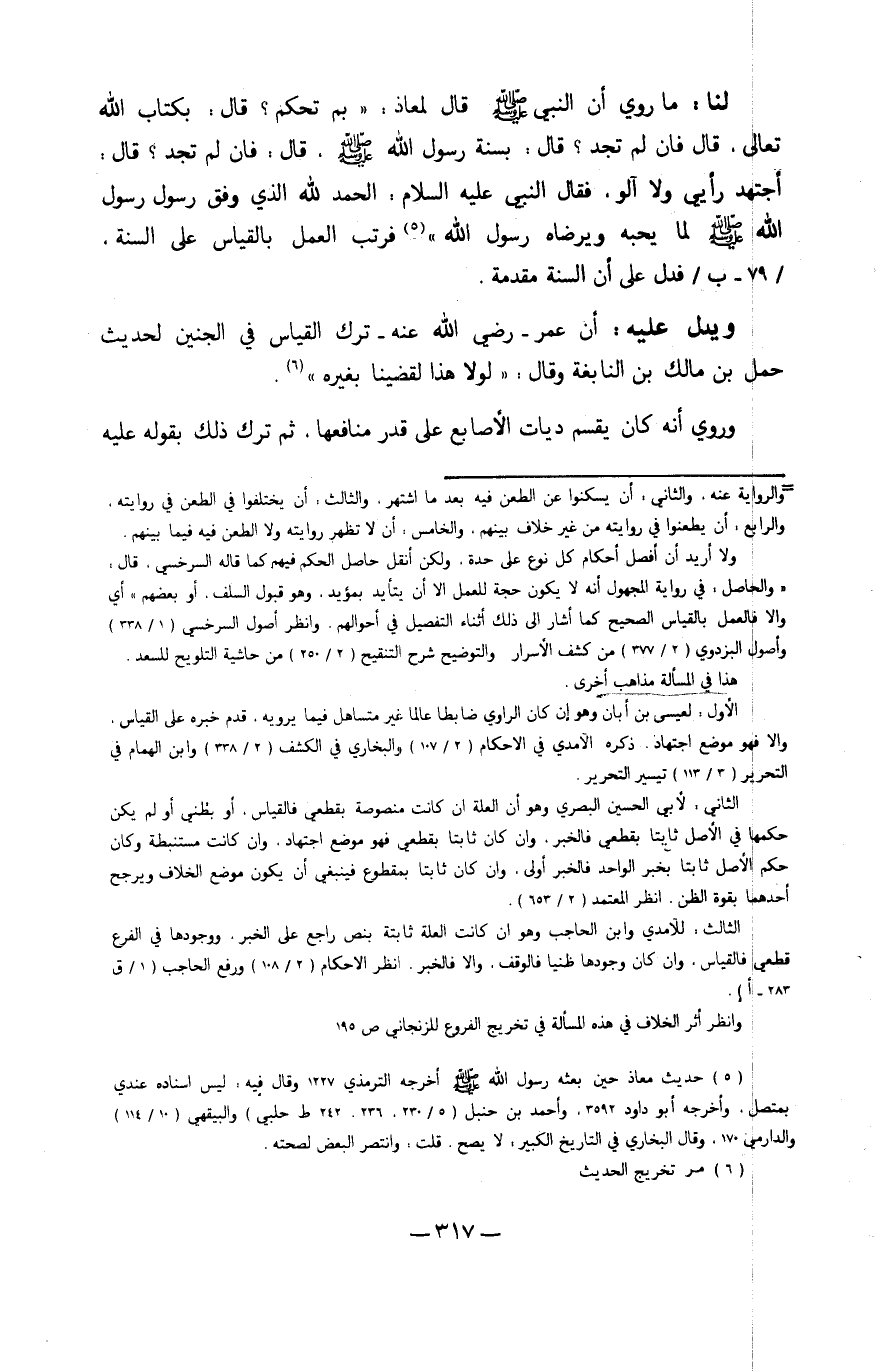 لنا : ما روي أن النبي ﷺ قال لمعاذ : « بم تحكم ؟ قال : بكتاب الله
تعالى . قال فان لم تجد ؟ قال : بسنة رسول الله ﷺ . قال : فان لم تجد ؟ قال :
أجتهد رأيي ولا آلو . فقال النبي عليه السلام : الحمد لله الذي وفق رسول رسول
الله ﷺ لما يحبه ويرضاه رسول الله »(٥) فرتب العمل بالقياس على السنة .
/ ٧٩ ـ ب / فدل على أن السنة مقدمة .
ويدل عليه : أن عمر ـ رضي الله عنه ـ ترك القياس في الجنين لحديث
حمل بن مالك بن النابغة وقال : « لولا هذا لقضينا بغيره »(٦) .
وروي أنه كان يقسم ديات الأصابع على قدر منافعها . ثم ترك ذلك بقوله عليه
= والرواية عنه . والثاني : أن يسكتوا عن الطعن فيه بعد ما اشتهر . والثالث : أن يختلفوا في الطعن في روايته .
والرابع : أن يطعنوا في روايته من غير خلاف بينهم . والخامس : أن لا تظهر روايته ولا الطعن فيه فيما بينهم .
ولا أريد أن أفصل أحكام كل نوع على حدة . ولكن أنقل حاصل الحكم فيهم كما قاله السرخسي . قال :
« والحاصل : في رواية المجهول أنه لا يكون حجة للعمل الا أن يتأيد بمؤيد . وهو قبول السلف . أو بعضهم » أي
والا فالعمل بالقياس الصحيح كما أشار الى ذلك أثناء التفصيل في أحوالهم . وانظر أصول السرخسي ( ١ / ٣٣٨ )
وأصول البزدوي ( ٢ / ٣٧٧ ) من كشف الأسرار والتوضيح شرح التنقيح ( ٢ / ٢٥٠ ) من حاشية التلويح للسعد .
هذا في المسألة مذاهب أخرى .
الأول : لعيسى بن أبان وهو إن كان الراوي ضابطا عالما غير متساهل فيما يرويه . قدم خبره على القياس .
والا فهو موضع اجتهاد . ذكره الآمدي في الاحكام ( ٢ / ١٠٧ ) والبخاري في الكشف ( ٢ / ٣٣٨ ) وابن الهمام في
التحرير ( ٣ / ١١٣ ) تيسير التحرير .
الثاني : لأبي الحسين البصري وهو أن العلة ان كانت منصوصة بقطعي فالقياس . أو بظني أو لم يكن
حكمها في الأصل ثابتا بقطعي فالخبر . وان كان ثابتا بقطعي فهو موضع اجتهاد . وان كانت مستنبطة وكان
حكم الأصل ثابتا بخبر الواحد فالخبر أولى . وان كان ثابتا بمقطوع فينبغي أن يكون موضع الخلاف ويرجح
أحدهما بقوة الظن . انظر المعتمد ( ٢ / ٦٥٣ ) .
الثالث : للآمدي وابن الحاجب وهو ان كانت العلة ثابتة بنص راجع على الخبر . ووجودها في الفرع
قطعي فالقياس . وان كان وجودها ظنيا فالوقف . والا فالخبر . انظر الاحكام ( ٢ / ١٠٨ ) ورفع الحاجب ( ١ / ق
٢٨٣ ـ أ ) .
وانظر أثر الخلاف في هذه المسألة في تخريج الفروع للزنجاني ص ١٩٥
( ٥ ) حديث معاذ حين بعثه رسول الله ﷺ أخرجه الترمذي ١٢٢٧ وقال فيه : ليس اسناده عندي
بمتصل . وأخرجه أبو داود ٣٥٩٢ . وأحمد بن حنبل ( ٥ / ٢٣٠ . ٢٣٦ . ٢٤٢ ط حلبي ) والبيقهي ( ١٠ / ١١٤ )
والدارمي ١٧٠ . وقال البخاري في التاريخ الكبير : لا يصح . قلت : وانتصر البعض لصحته .
( ٦ ) مر تخريج الحديث
— ٣١٧ —